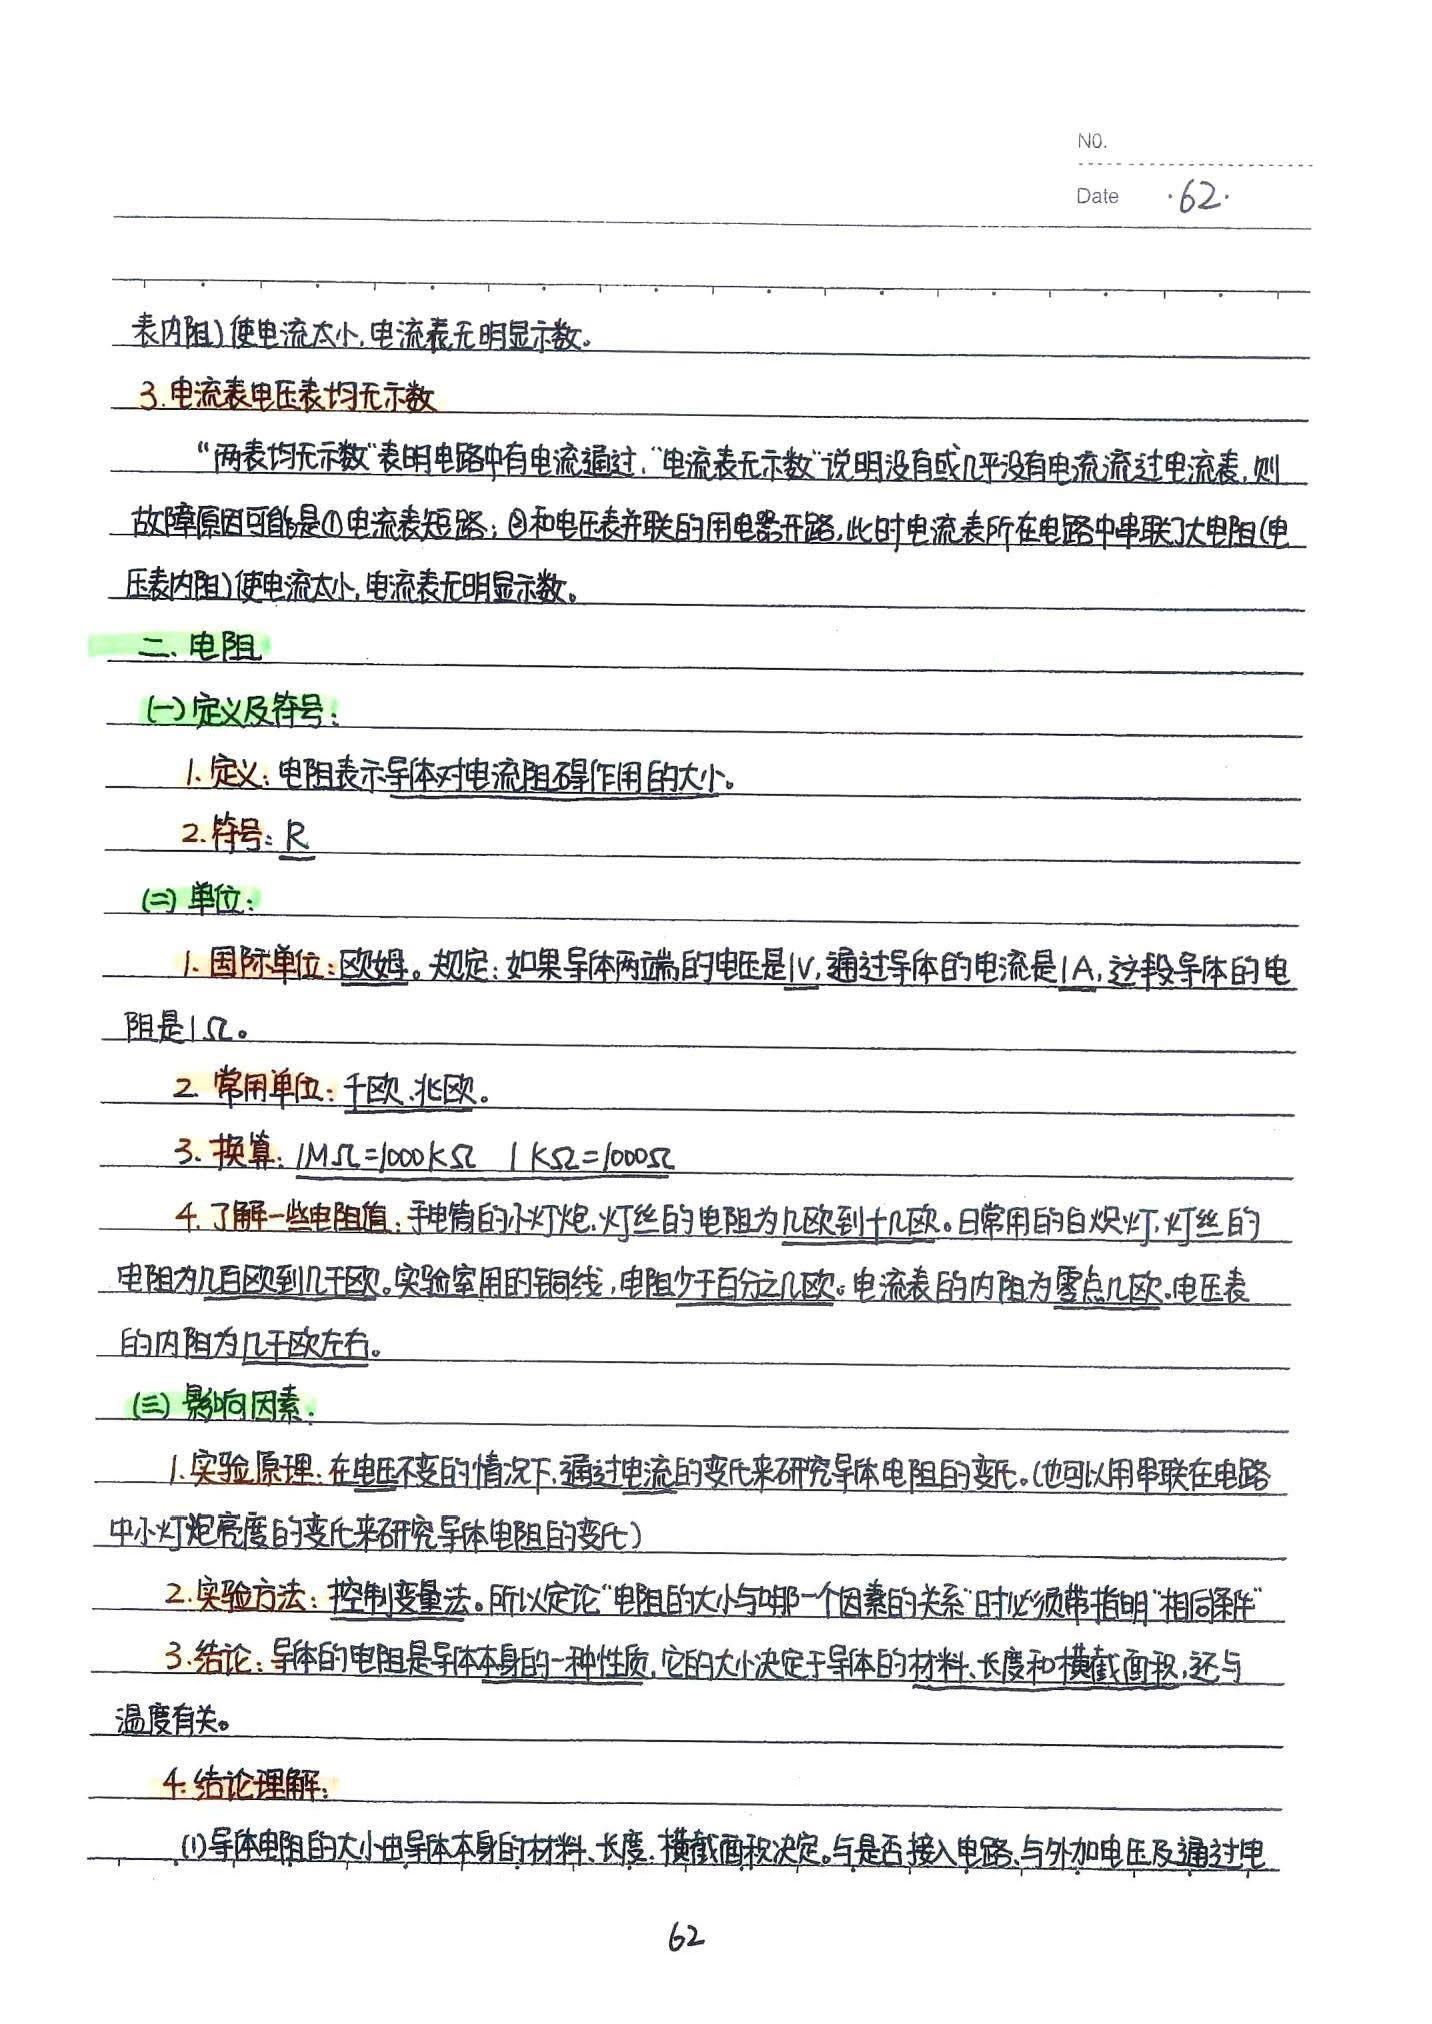 NO.
Date ·62·
表内阻)使电流太小,电流表无明显示数。
3.电流表电压表均无示数
“两表均无示数”表明电路中有电流通过,“电流表无示数”说明没有或几乎没有电流流过电流表,则
故障原因可能是①电流表短路;②和电压表并联的用电器开路,此时电流表所在电路中串联了大电阻(电
压表内阻)使电流太小,电流表无明显示数。
二、电阻
(一)定义及符号:
1.定义:电阻表示导体对电流阻碍作用的大小。
2.符号:R
(二)单位:
1.国际单位:欧姆。规定:如果导体两端的电压是1V,通过导体的电流是1A,这段导体的电
阻是1Ω。
2.常用单位:千欧、兆欧。
3.换算:1MΩ=1000KΩ 1KΩ=1000Ω
4.了解一些电阻值:手电筒的小灯炮,灯丝的电阻为几欧到十几欧。日常用的白炽灯,灯丝的
电阻为几百欧到几千欧。实验室用的铜线,电阻少于百分之几欧。电流表的内阻为零点几欧。电压表
的内阻为几千欧左右。
(三)影响因素:
1.实验原理:在电压不变的情况下,通过电流的变化来研究导体电阻的变化。(也可以用串联在电路
中小灯炮亮度的变化来研究导体电阻的变化)
2.实验方法:控制变量法。所以定论“电阻的大小与哪一个因素的关系”时必须带指明“相同条件”
3.结论:导体的电阻是导体本身的一种性质,它的大小决定于导体的材料、长度和横截面积,还与
温度有关。
4.结论理解:
(1)导体电阻的大小由导体本身的材料、长度、横截面积决定。与是否接入电路、与外加电压及通过电
62